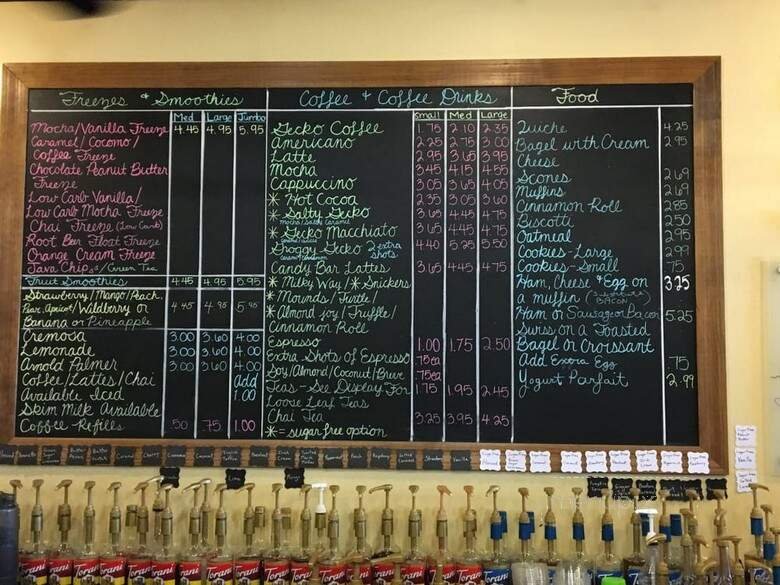 Freezes & Smoothies
Med Large Jumbo
Mocha/Vanilla Freeze 4.45 4.95 5.95
Caramel/Cocomo/
Coffee Freeze
Chocolate Peanut Butter
Freeze
Low Carb Vanilla/
Low Carb Mocha Freeze
Chai Freeze (Low Carb)
Root Beer Float Freeze
Orange Cream Freeze
Java Chip/Green Tea
Fruit Smoothies 4.45 4.95 5.95
Strawberry/Mango/Peach,
Pear, Apricot/Wildberry or 4.45 4.95 5.95
Banana or Pineapple
Cremosa 3.00 3.60 4.00
Lemonade 3.00 3.60 4.00
Arnold Palmer 3.00 3.60 4.00
Coffee/Lattes/Chai Add
Available Iced 1.00
Skim Milk Available
Coffee-Refills .50 .75 1.00
Coffee & Coffee Drinks
Small Med Large
Gecko Coffee 1.75 2.10 2.35
Americano 2.25 2.75 3.00
Latte 2.95 3.65 3.95
Mocha 3.45 4.15 4.55
Cappuccino 3.05 3.65 4.05
* Hot Cocoa 2.35 3.05 3.60
* Salty Gecko 3.65 4.45 4.75
mocha/salty caramel
* Gecko Macchiato 3.65 4.45 4.75
Groggy Gecko 2 extra shots 4.40 5.25 5.50
Candy Bar Lattes 3.65 4.45 4.75
* Milky Way/* Snickers
* Mounds/Turtle/
* Almond Joy/Truffle/
Cinnamon Roll
Espresso 1.00 1.75 2.50
Extra Shots of Espresso .75ea
Soy/Almond/Coconut/Breve .75ea
Teas - See Display For 1.75 1.95 2.45
Loose Leaf Teas
Chai Tea 3.25 3.95 4.25
* = sugar free option
Food
Quiche 4.25
Bagel with Cream 2.95
Cheese
Scones 2.69
Muffins 2.69
Cinnamon Roll 2.85
Biscotti 2.50
Oatmeal 2.95
Cookies-Large 2.99
Cookies-Small .75
Ham, Cheese & Egg on 3.25
a muffin (
BACON)
Ham or Sausage or Bacon 5.25
Swiss on a Toasted
Bagel or Croissant
Add Extra Egg .75
Yogurt Parfait 2.99
Torani Torani Torani Torani Torani Torani Torani Torani Torani Torani Torani Torani